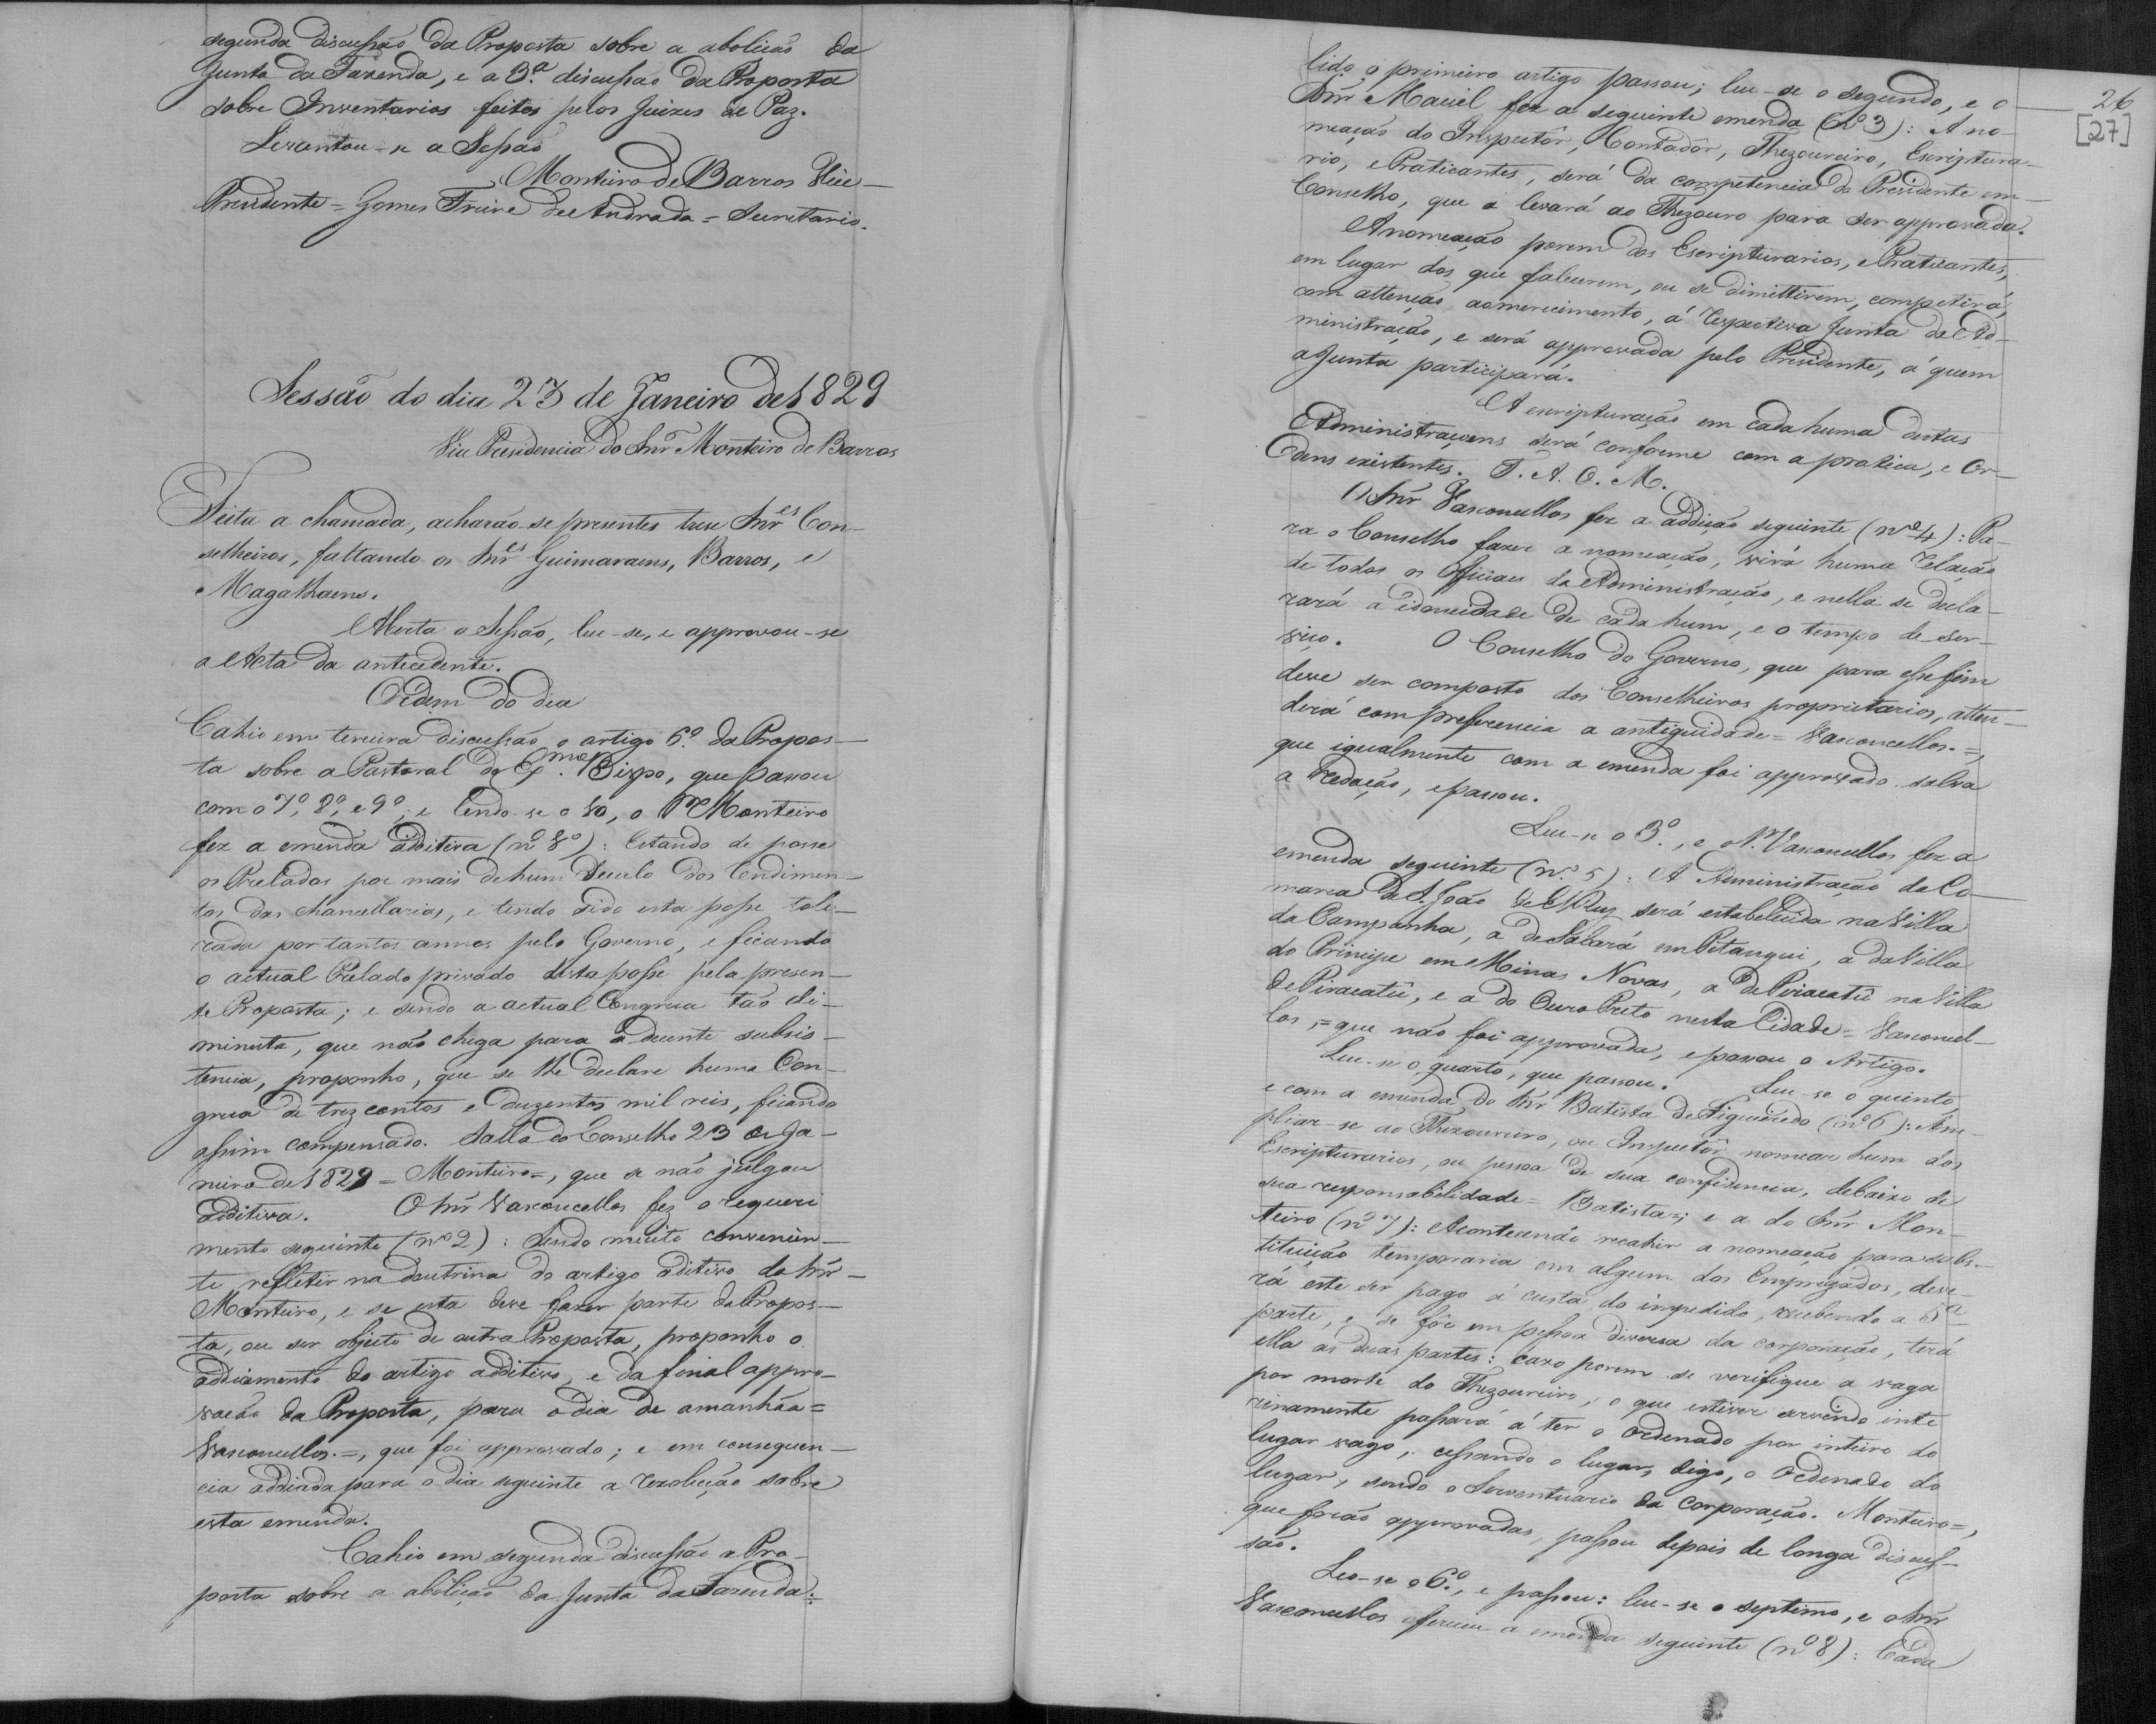 segunda discussão da Proposta sobre a abolicão da
Junta da Fazenda, e a 3.ª discussão da Proposta
sobre Inventarios feitos pelos Juizes de Paz.
Levantou-se a Sessão
Monteiro de Barros Vice-
Presidente = Gomes Freire de Andrada = Secretario.
Sessão do dia 23 de Janeiro de 1829
Vice Presidencia do Snr Monteiro de Barros
Feita a chamada, acharão-se presentes treze Snr.es Con-
selheiros, faltando os Snr.es Guimaraens, Barros, e
Magalhaens.
Aberta a Sessão, leu-se, e approvou-se
a Acta da antecedente.
Ordem do dia
Cahio em terceira discussão o artigo 6.º da Propos-
ta sobre a Pastoral do Ex.mo Bispo, que passou
com o 7.º, 8.º, e 9.º, e lendo-se o 10, o Snr Monteiro
fez a emenda additiva (nº 1º): Estando de posse
os Prelados por mais de hum Seculo dos rendimen-
tos das chancellarias, e tendo sido esta posse tole-
rada por tantos annos pelo Governo, e ficando
o actual Prelado privado desta posse pela presen-
te Proposta; e sendo a actual Congrua tão di-
minuta, que não chega para a decente subsis-
tencia, proponho, que se lhe declare huma Con-
grua de trez contos e duzentos mil reis, ficando
assim compensado. Salla do Conselho 23 de Ja-
neiro de 1829 = Monteiro =, que se não julgou
additiva. O Snr Vasconcellos fez o requeri
mento seguinte (nº 2): Sendo muito convenien-
te refletir na doutrina do artigo aditivo do Snr
Monteiro, e se esta deve fazer parte da Propos-
ta, ou ser objecto de outra Proposta, proponho o
addiamento do artigo additivo, e da final appro-
vacão da Proposta, para o dia de amanhãa =
Vasconcellos. =, que foi approvado; e em consequen-
cia addiada para o dia seguinte a resolução sobre
esta emenda.
Cahio em segunda discussão a Pro-
posta sobre a abolição da Junta da Fazenda:
26
[27]
lido o primeiro artigo passou; leu-se o segundo, e o
Snr Maciel fez a seguinte emenda (Nº 3): A no-
meação do Inspector, Contador, Thezoureiro, Escriptura-
rio, e Praticantes, será da competencia do Presidente em
Conselho, que a levará ao Thezouro para ser approvada.
A nomeação porem dos Escripturarios, e Praticantes,
em lugar dos que falecerem, ou se dimittirem, competirá,
com attenção ao merecimento, á respectiva Junta de Ad-
ministração, e será approvada pelo Presidente, á quem
a Junta participará.
A escripturação em cada huma destas
Administraçoens será conforme com a pratica, e Or-
dens existentes. T. A. O. M.
O Snr Vasconcellos fez a addição seguinte (nº 4): Pa-
ra o Conselho fazer a nomeação, virá huma relação
de todos os Officiaes da Administração, e nella se decla-
rará a idoneidade de cada hum, e o tempo de ser-
viço. O Conselho do Governo, que para esse fim
deve ser composto dos Conselheiros proprietarios, atten-
derá com preferencia a antiguidade = Vasconcellos. =,
que igualmente com a emenda foi approvado salva
a redação, e passou.
Leu-se o 3.º, e o Snr Vasconcellos fez a
emenda seguinte (nº 5): A Administração da Co-
marca de S. João de ElRey será estabelecida na Villa
da Campanha, a de Sabará em Pitangui, a da Villa
do Principe em Minas Novas, a de Piracatú na Villa
de Piracatú, e a do Ouro Preto nesta Cidade = Vasconcel-
los, = que não foi approvada, e passou o Artigo.
Leu-se o quarto, que passou. Leu-se o quinto
e com a emenda do Snr Batista de Figueiredo (nº 6): Am-
pliar-se ao Thezoureiro, ou Inspector nomear hum dos
Escripturarios, ou pessoa de sua confidencia, debaixo de
sua responsabilidade = Batista =; e a do Snr Mon-
teiro (nº 7): Acontecendo recahir a nomeação para subs-
tituição temporaria em algum dos Empregados, deve-
rá este ser pago á custa do impedido, recebendo a 5ª
parte, e se fôr em pessoa diversa da corporação, terá
ella as duas partes: caso porem se verifique a vaga
por morte do Thezoureiro, o que estiver servindo inte
rinamente passará á ter o ordenado por inteiro do
lugar vago, cessando o lugar, digo, o ordenado do
lugar, sendo o Serventuario da Corporação. Monteiro =,
que forão approvadas, passou depois de longa discus-
são.
Leo-se o 6.º, e passou: leu-se o septimo, e o Snr
Vasconcellos ofereceu a emenda seguinte (nº 8): Cada